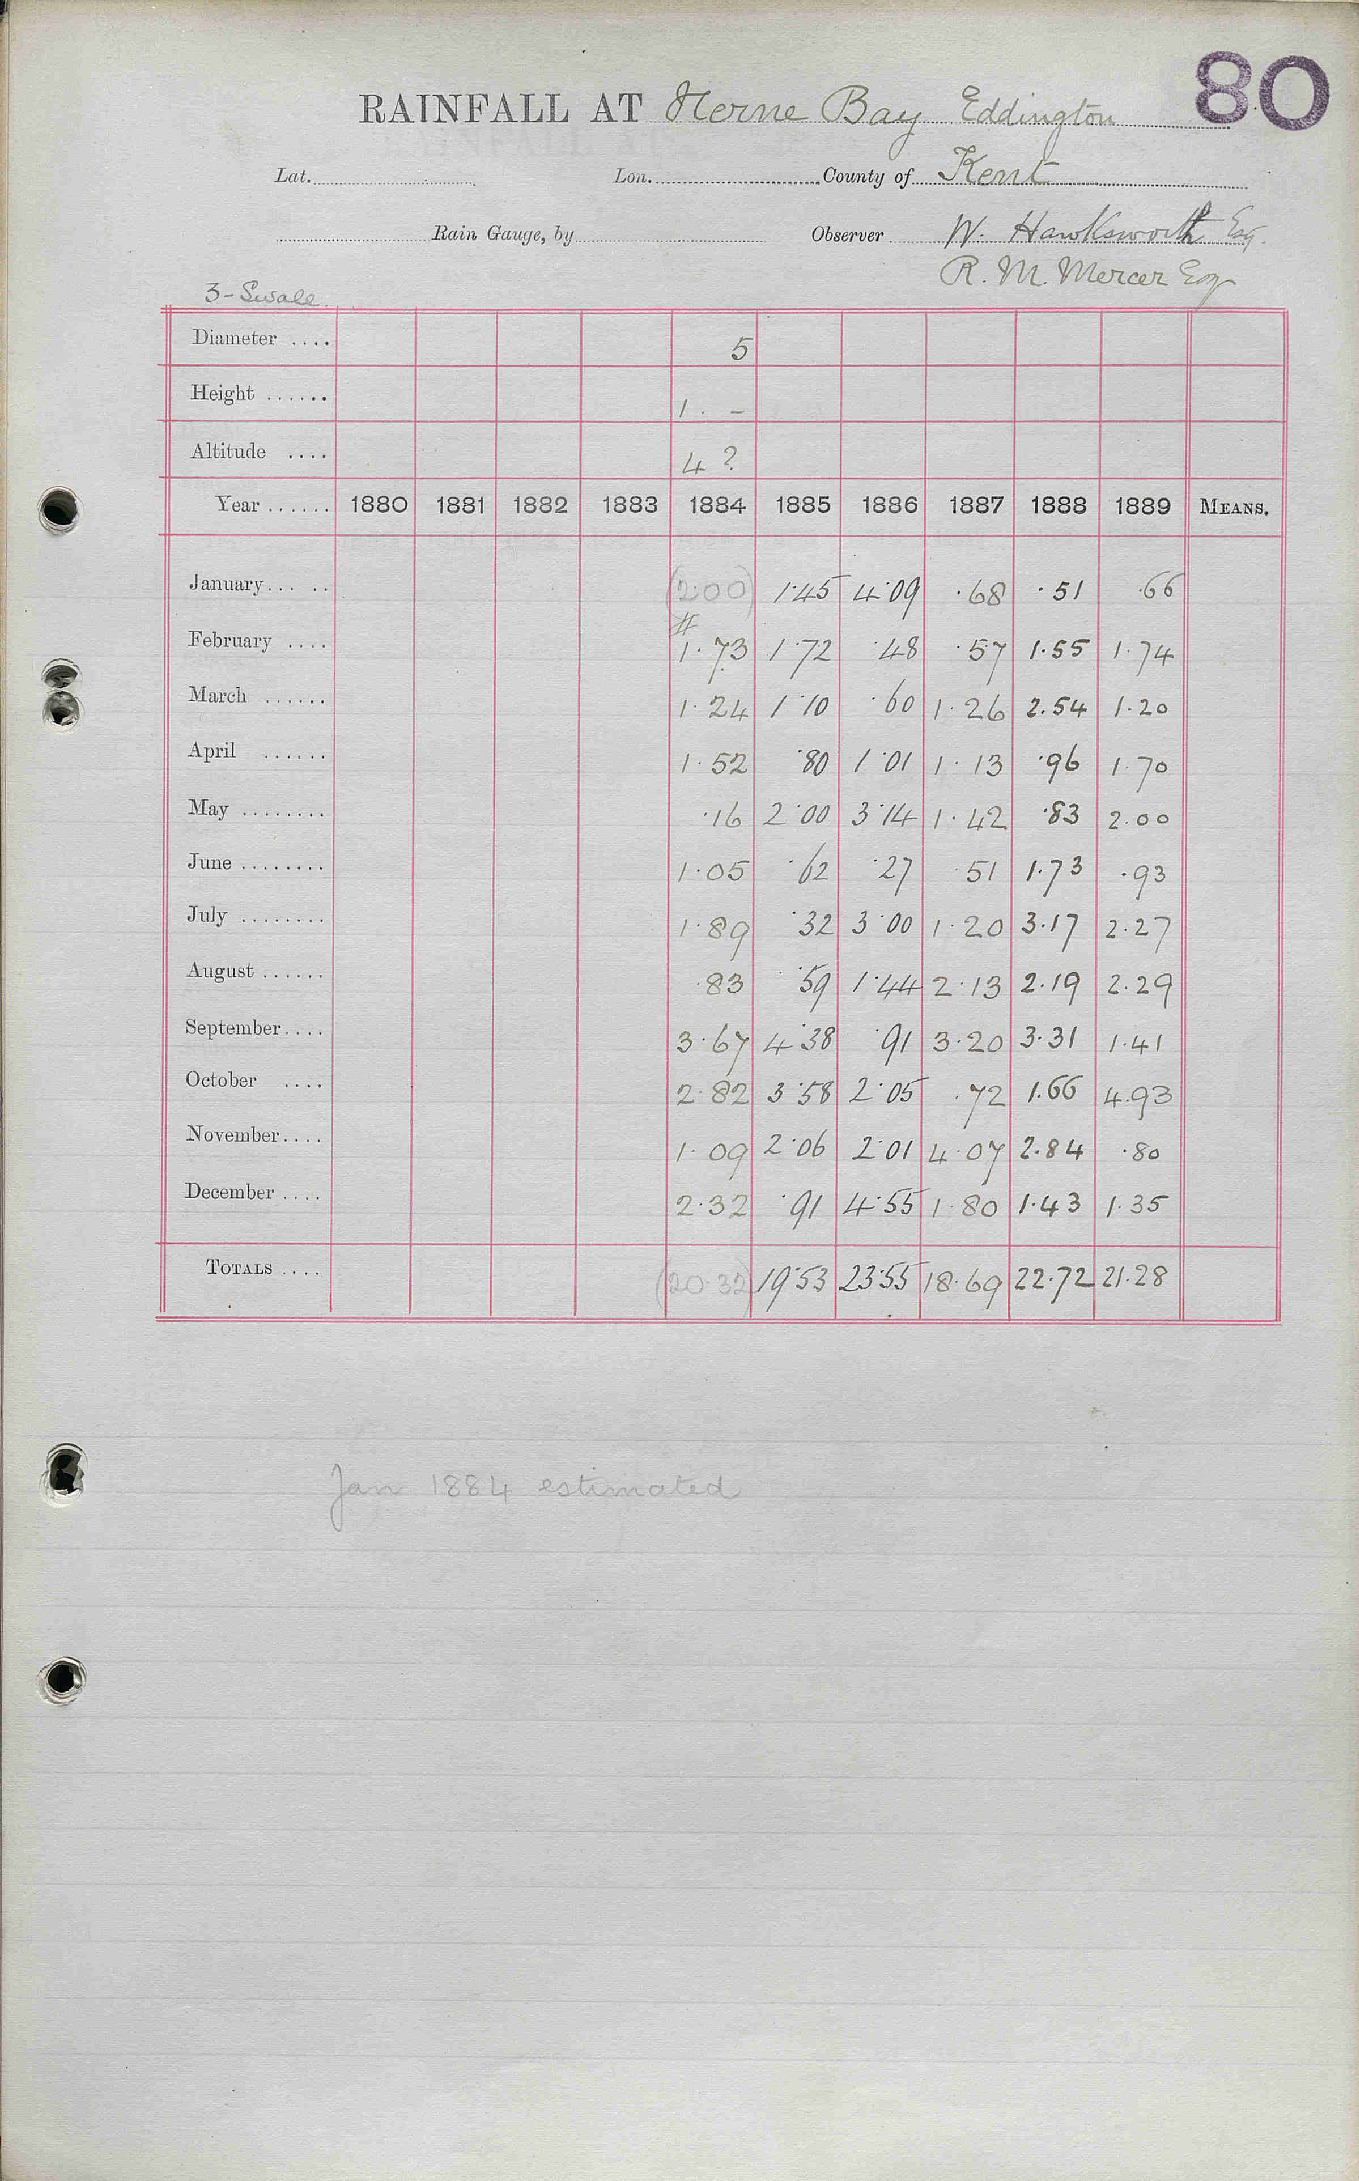 80
RAINFALL AT Herne Bay Eddington
Lat. Lon. County of Kent
Rain Gauge, by Observer W. Hawksworth Esq.
R. M. Mercer Esq
3-Swale
Diameter .... 5
Height ...... 1. -
Altitude .... 4 ?
Year ...... 1880 1881 1882 1883 1884 1885 1886 1887 1888 1889 MEANS.
January ... .. (2.00) 1.45 4.09 .68 .51 .66
#
February .... 1.73 1.72 .48 .57 1.55 1.74
March ...... 1.24 1.10 .60 1.26 2.54 1.20
April ...... 1.52 .80 1.01 1.13 .96 1.70
May ........ .16 2.00 3.14 1.42 .83 2.00
June ........ 1.05 .62 .27 .51 1.73 .93
July ........ 1.89 .32 3.00 1.20 3.17 2.27
August ...... .83 .59 1.44 2.13 2.19 2.29
September .... 3.67 4.38 .91 3.20 3.31 1.41
October .... 2.82 3.58 2.05 .72 1.66 4.93
November .... 1.09 2.06 2.01 4.07 2.84 .80
December .... 2.32 .91 4.55 1.80 1.43 1.35
TOTALS .... (20.32) 19.53 23.55 18.69 22.72 21.28
Jan 1884 estimated